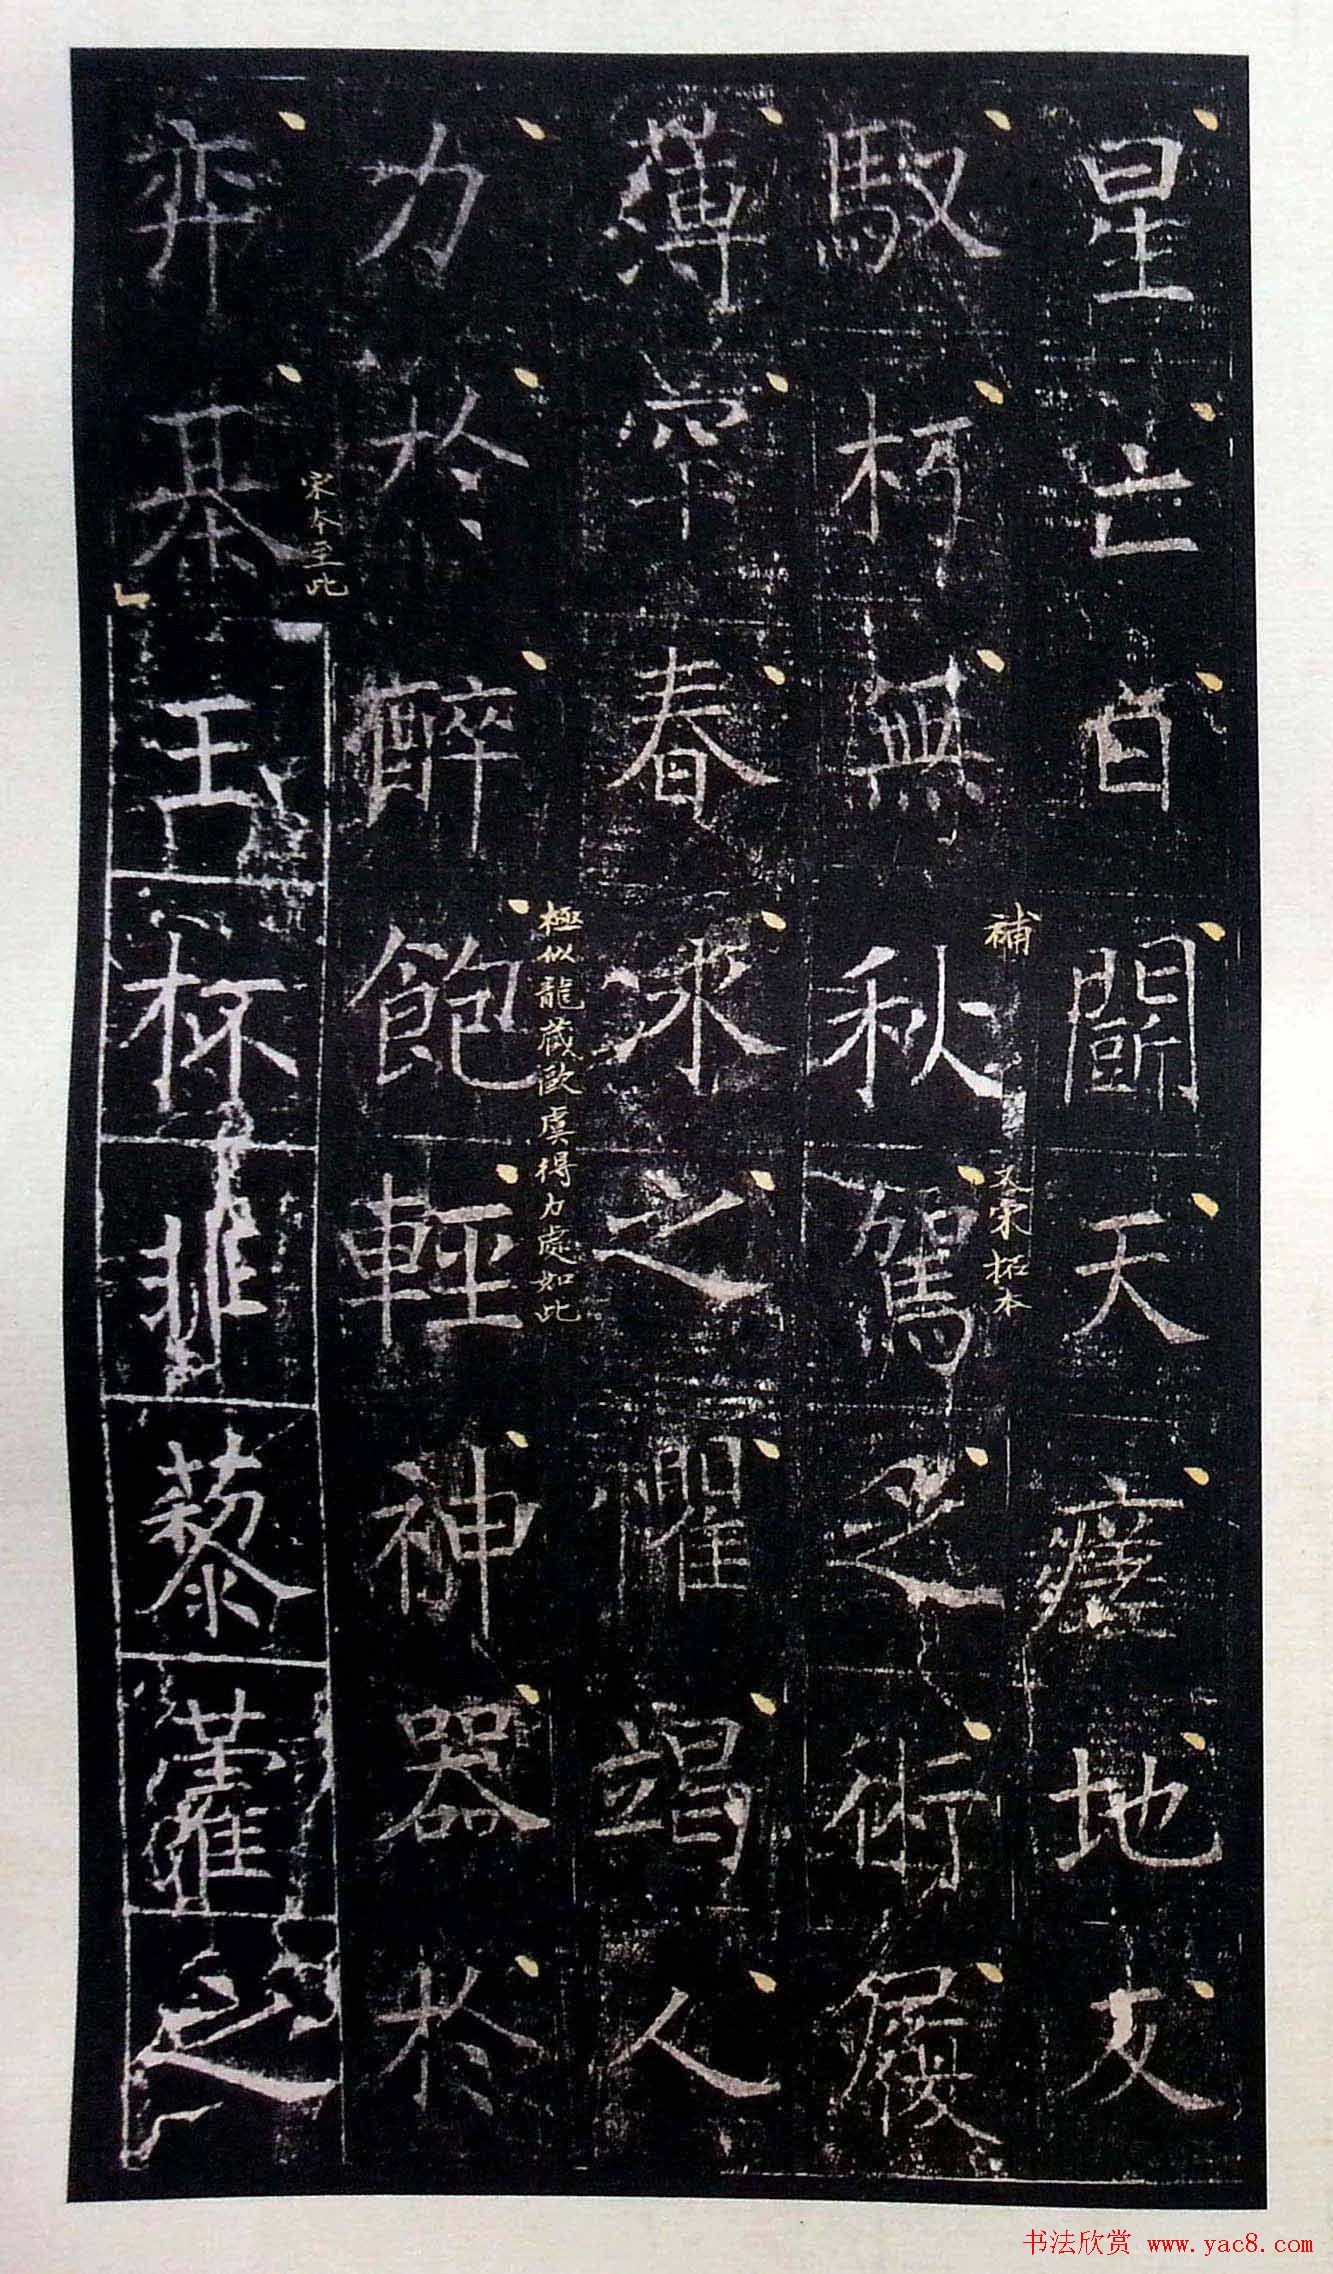 星亡自鬭天瘥地文
補 又宋拓本
馭朽無秋駕之術履
薄罕春氷之懼竭人
極似龍藏歐虞得力處如此
力於醉飽輕神器於
宋本至此
弈棊玉杯非藜藿之
书法欣赏 www.yac8.com